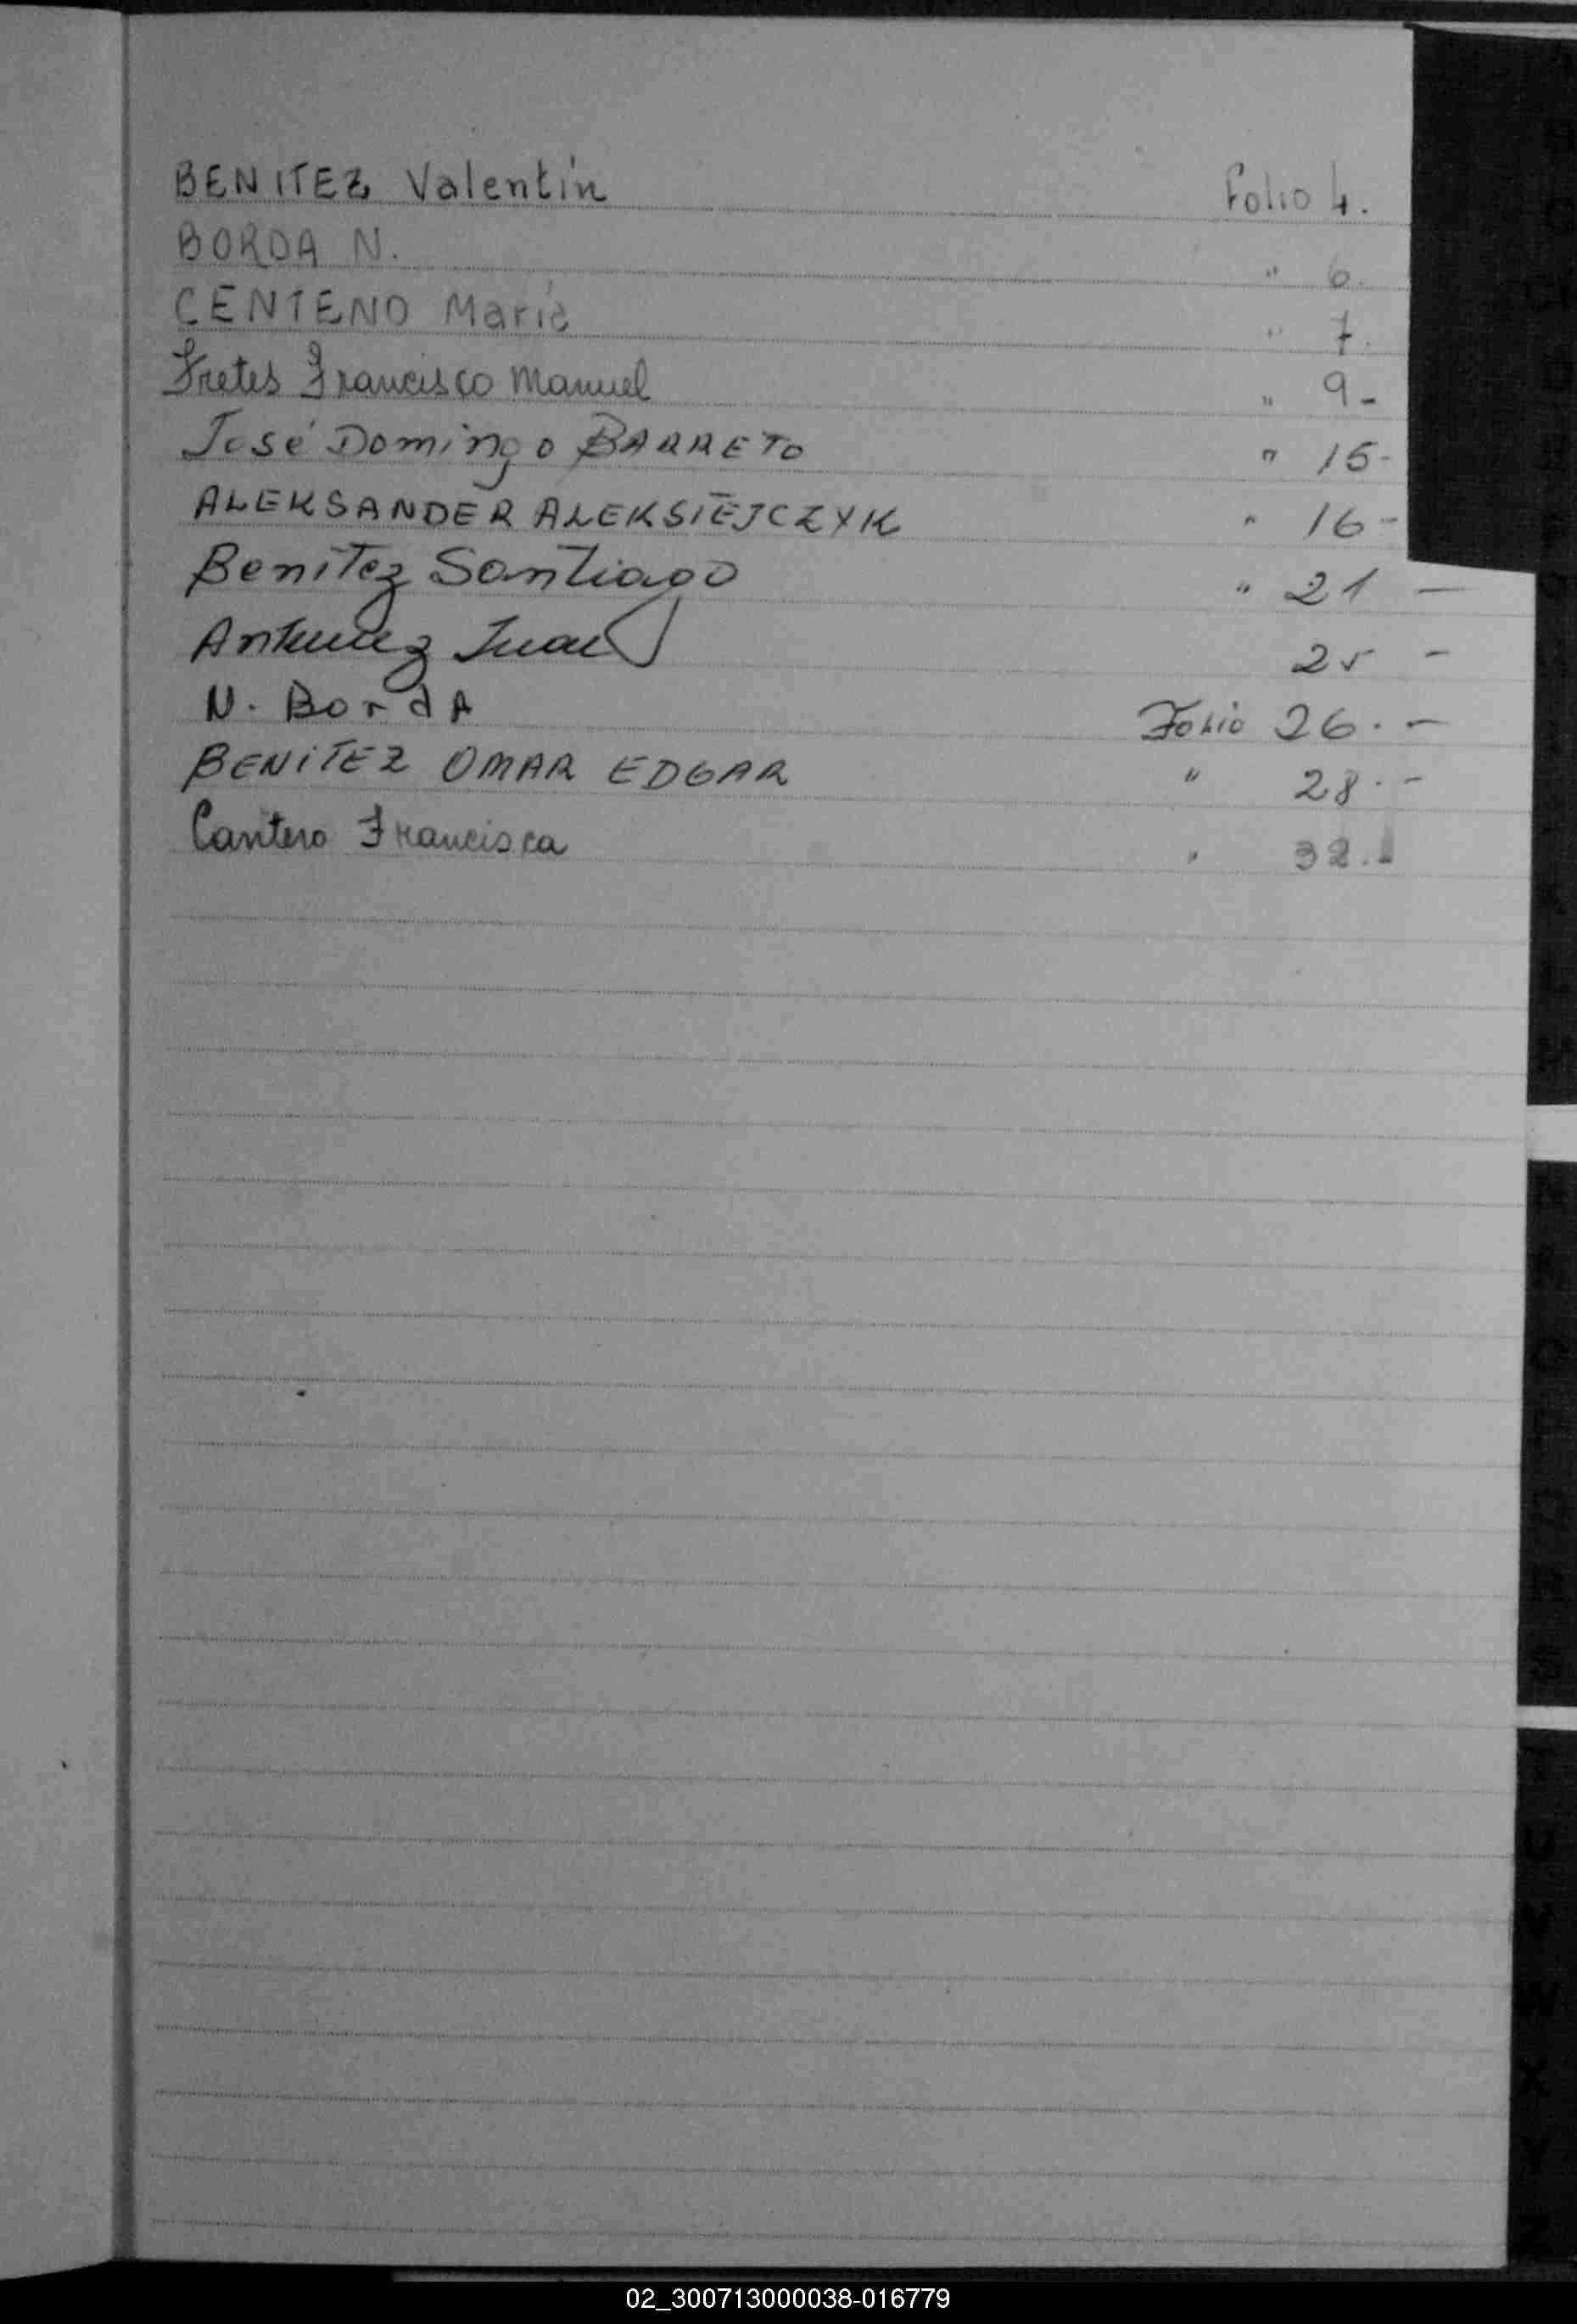 BENITEZ Valentín Folio 4.
BORDA N. " 6.
CENTENO María " 7.
Fretes Francisco Manuel " 9-
José Domingo BARRETO " 15-
ALEKSANDER ALEKSIEJCZYK " 16-
Benitez Santiago " 21 -
Antunez Juan 25 -
N. BordA Folio 26.-
BENITEZ OMAR EDGAR " 28.-
Cantero Francisca " 32.-
02_300713000038-016779